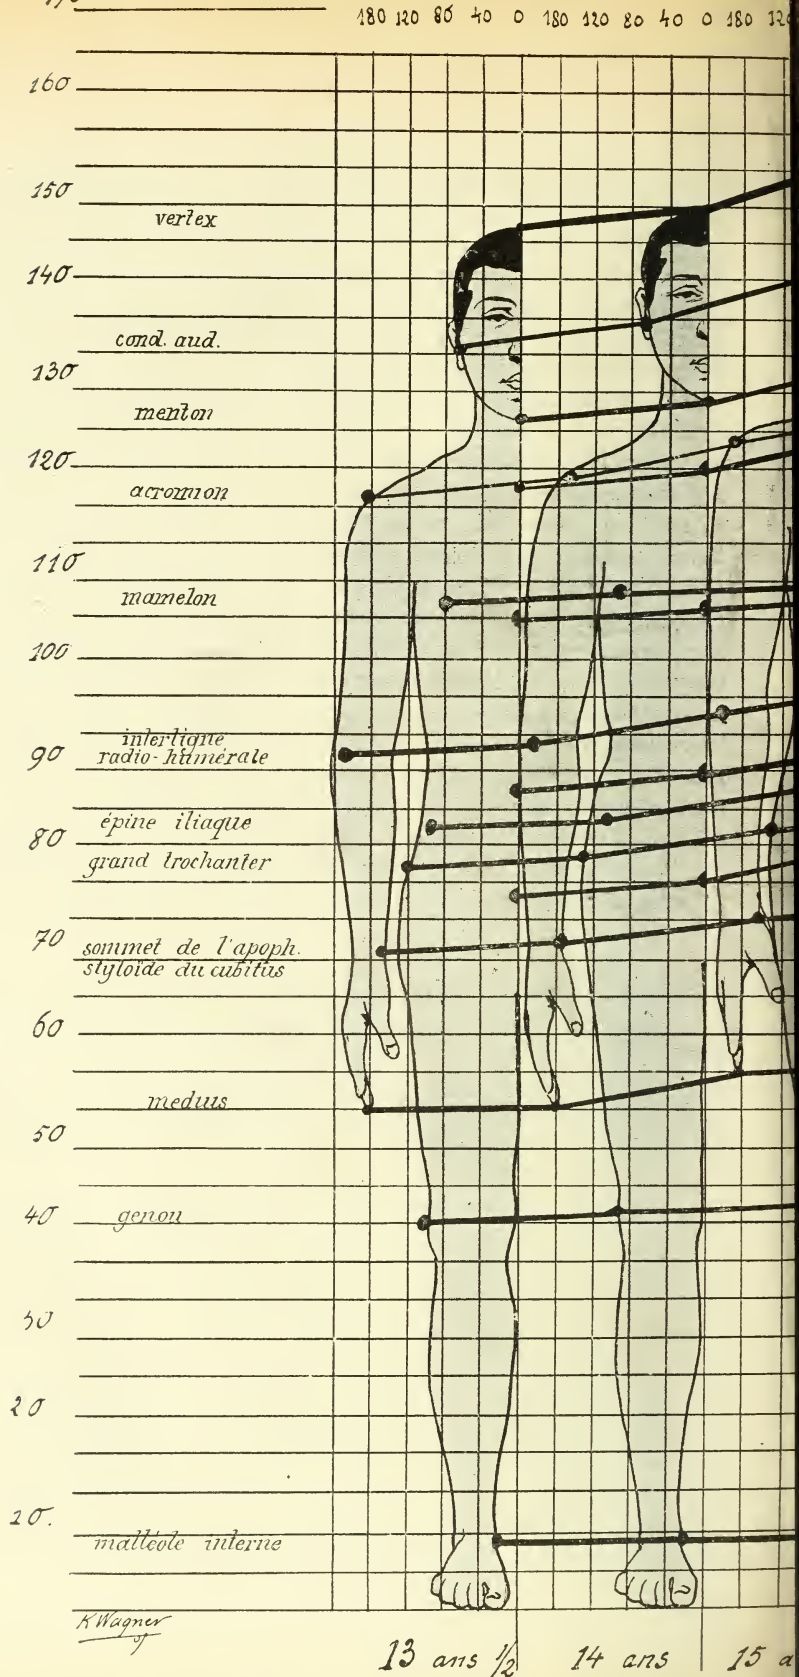 180 120 80 40 0 180 120 80 40 0 180
160
150
vertex
140
cond. aud.
130
menton
120
acromion
110
mamelon
100
interligne
90
radio-humérale
épine iliaque
80
grand trochanter
70
sommet de l'apoph.
styloïde du cubitus
60
medius
50
40
genou
30
20
10.
malléole interne
K Wagner
13 ans ½ 14 ans 15 a